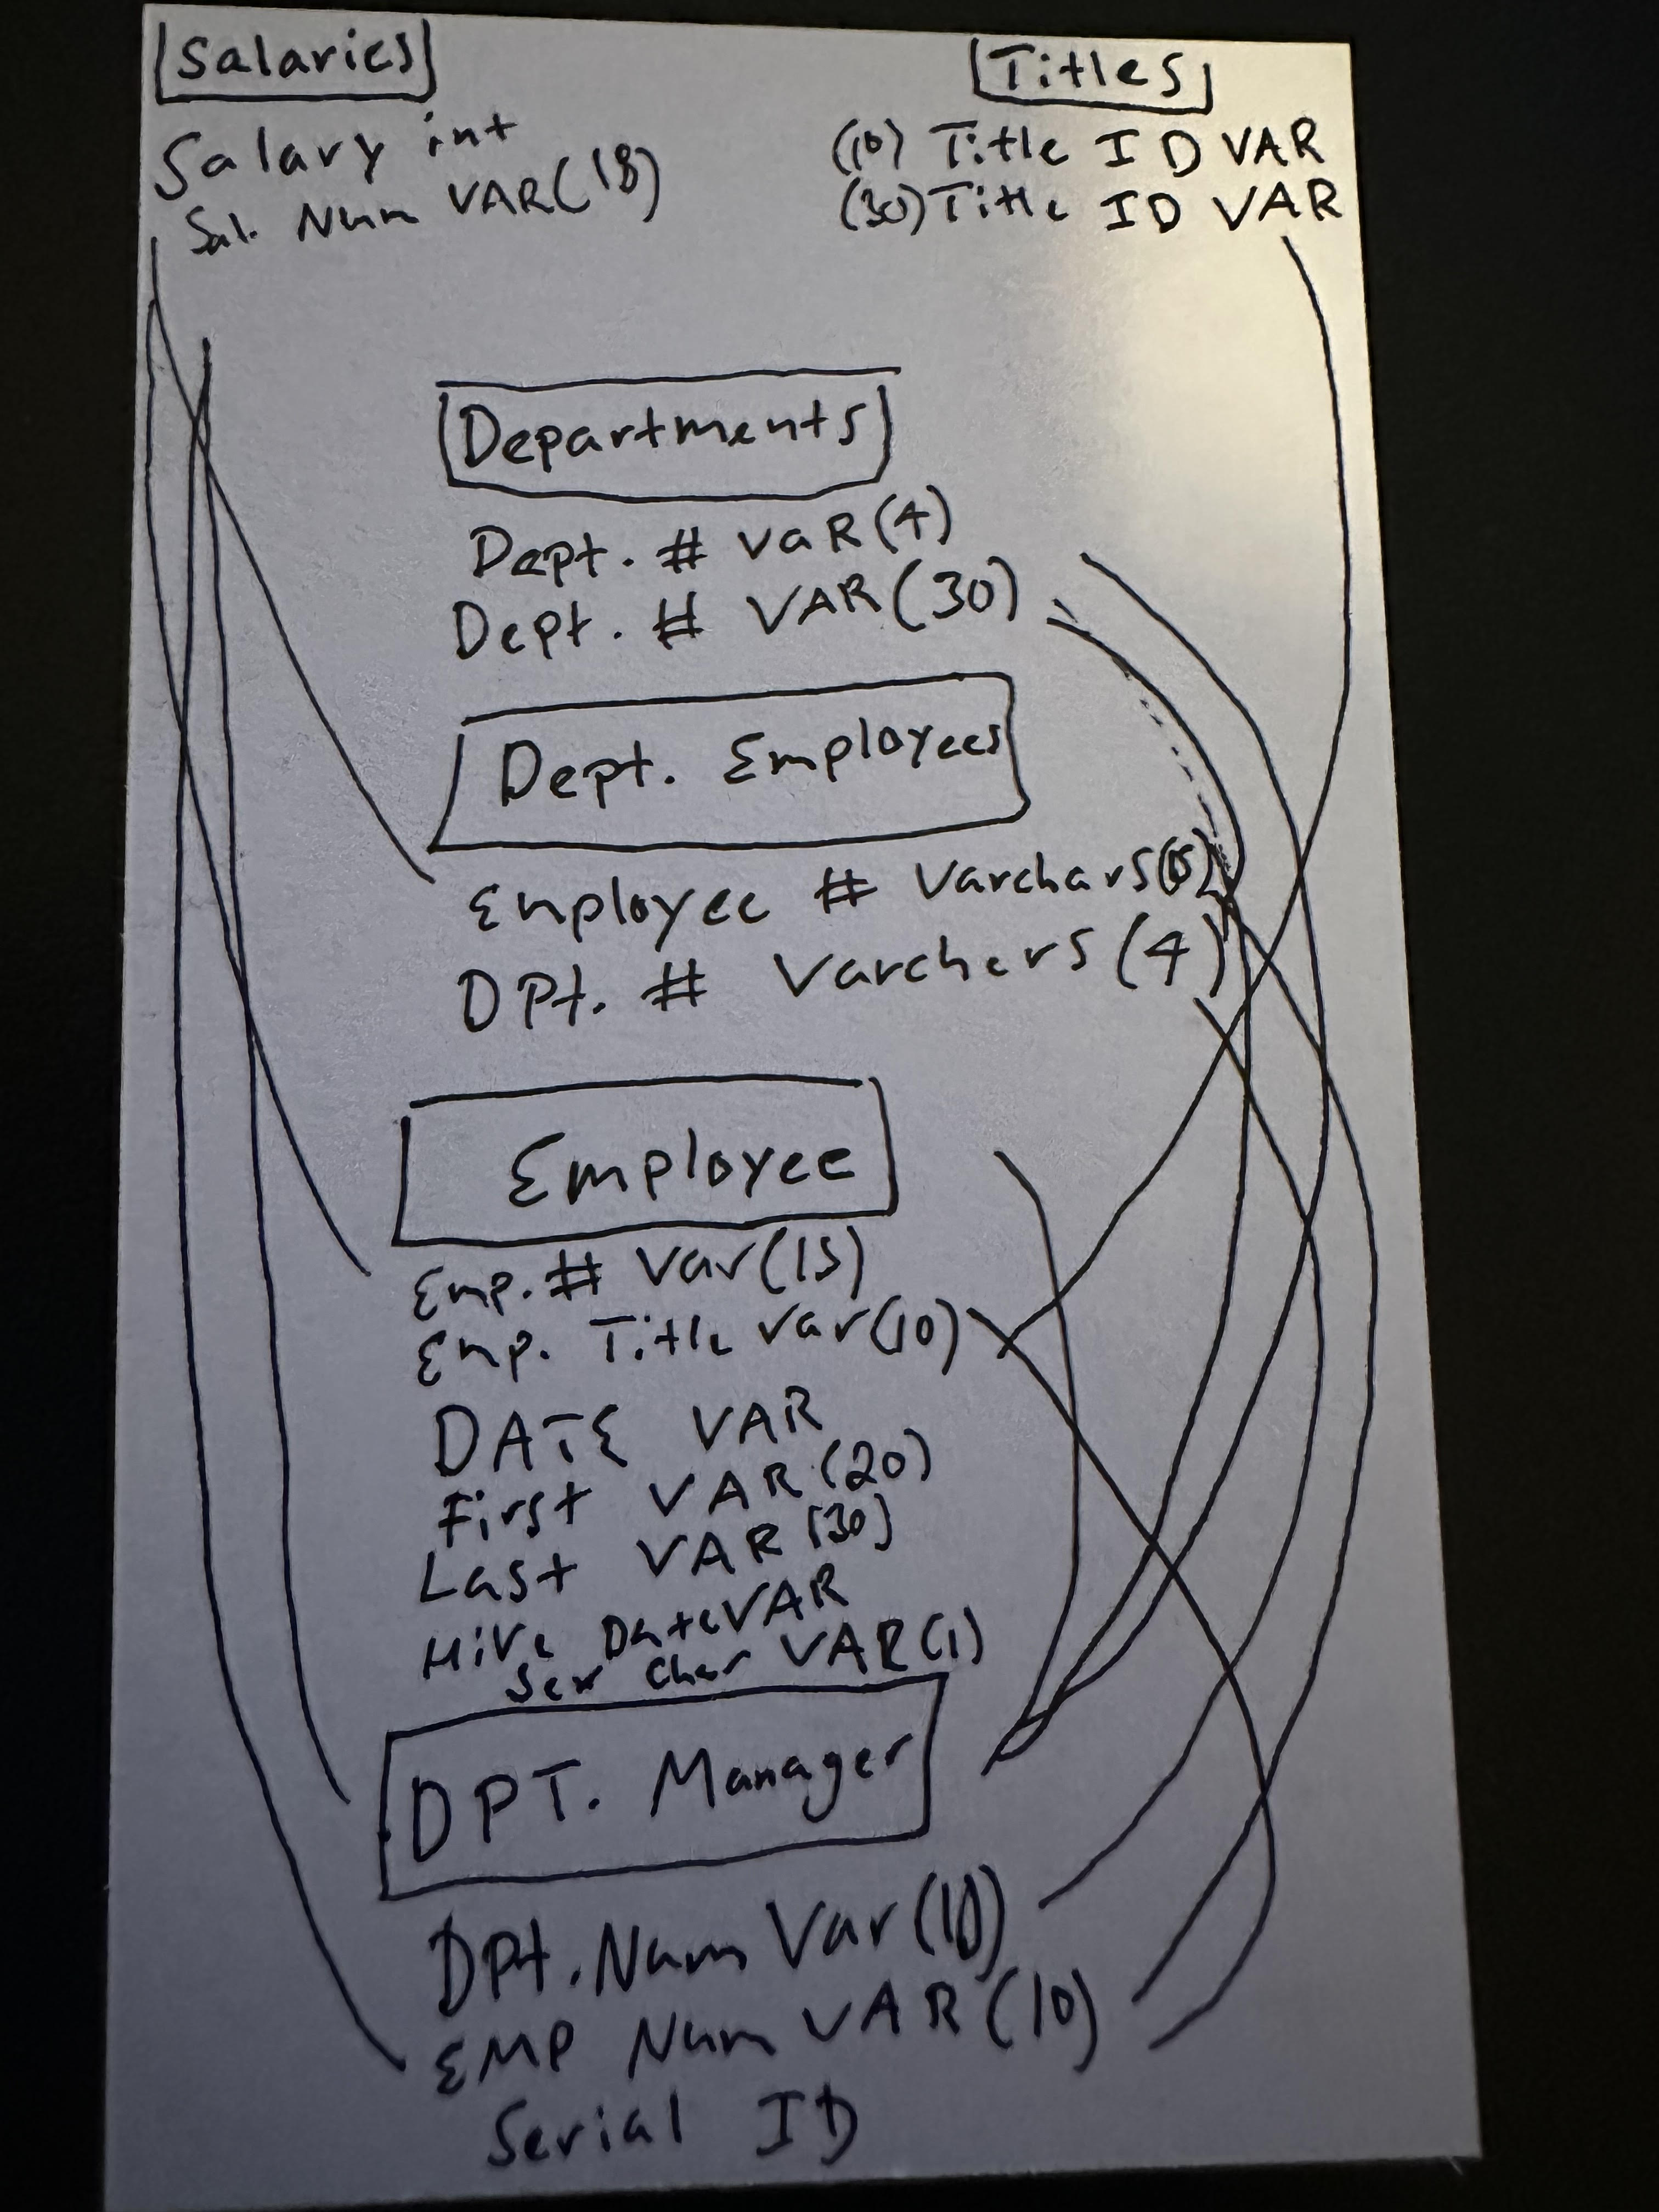 Salaries
Salary int
Sal. Num VAR(18)
Titles
(10) Title ID VAR
(30) Title ID VAR
Departments
Dept. # VaR(4)
Dept. # VAR(30)
Dept. Employees
Employee # Varchars
DPt. # Varchers (4)
Employee
Emp. # Var(15)
Emp. Title Var(10)
DATE VAR
First VAR(20)
Last VAR(30)
Hire Date VAR
Sex Char VAR(1)
DPT. Manager
DPt. Num Var(10)
EMP Num VAR(10)
Serial ID